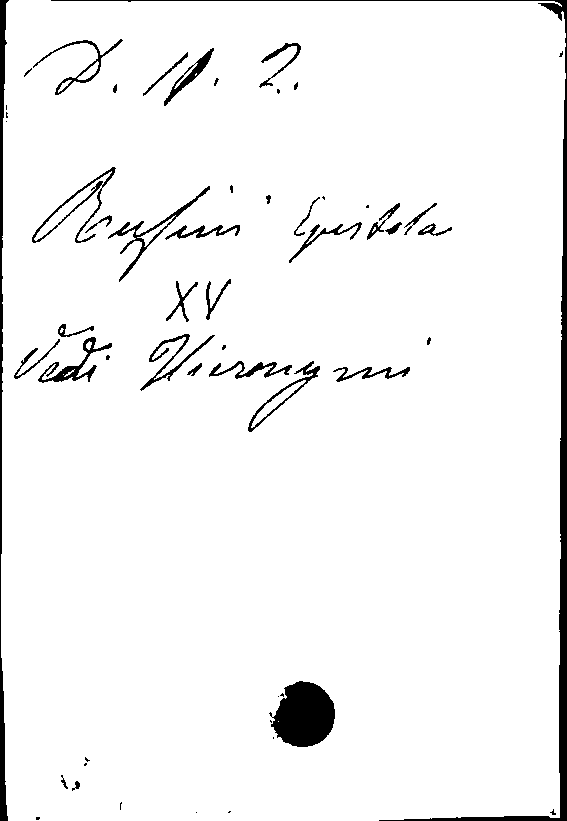 D. 10. 2.
Rufini Epistola
XV
Vedi Hieronymi